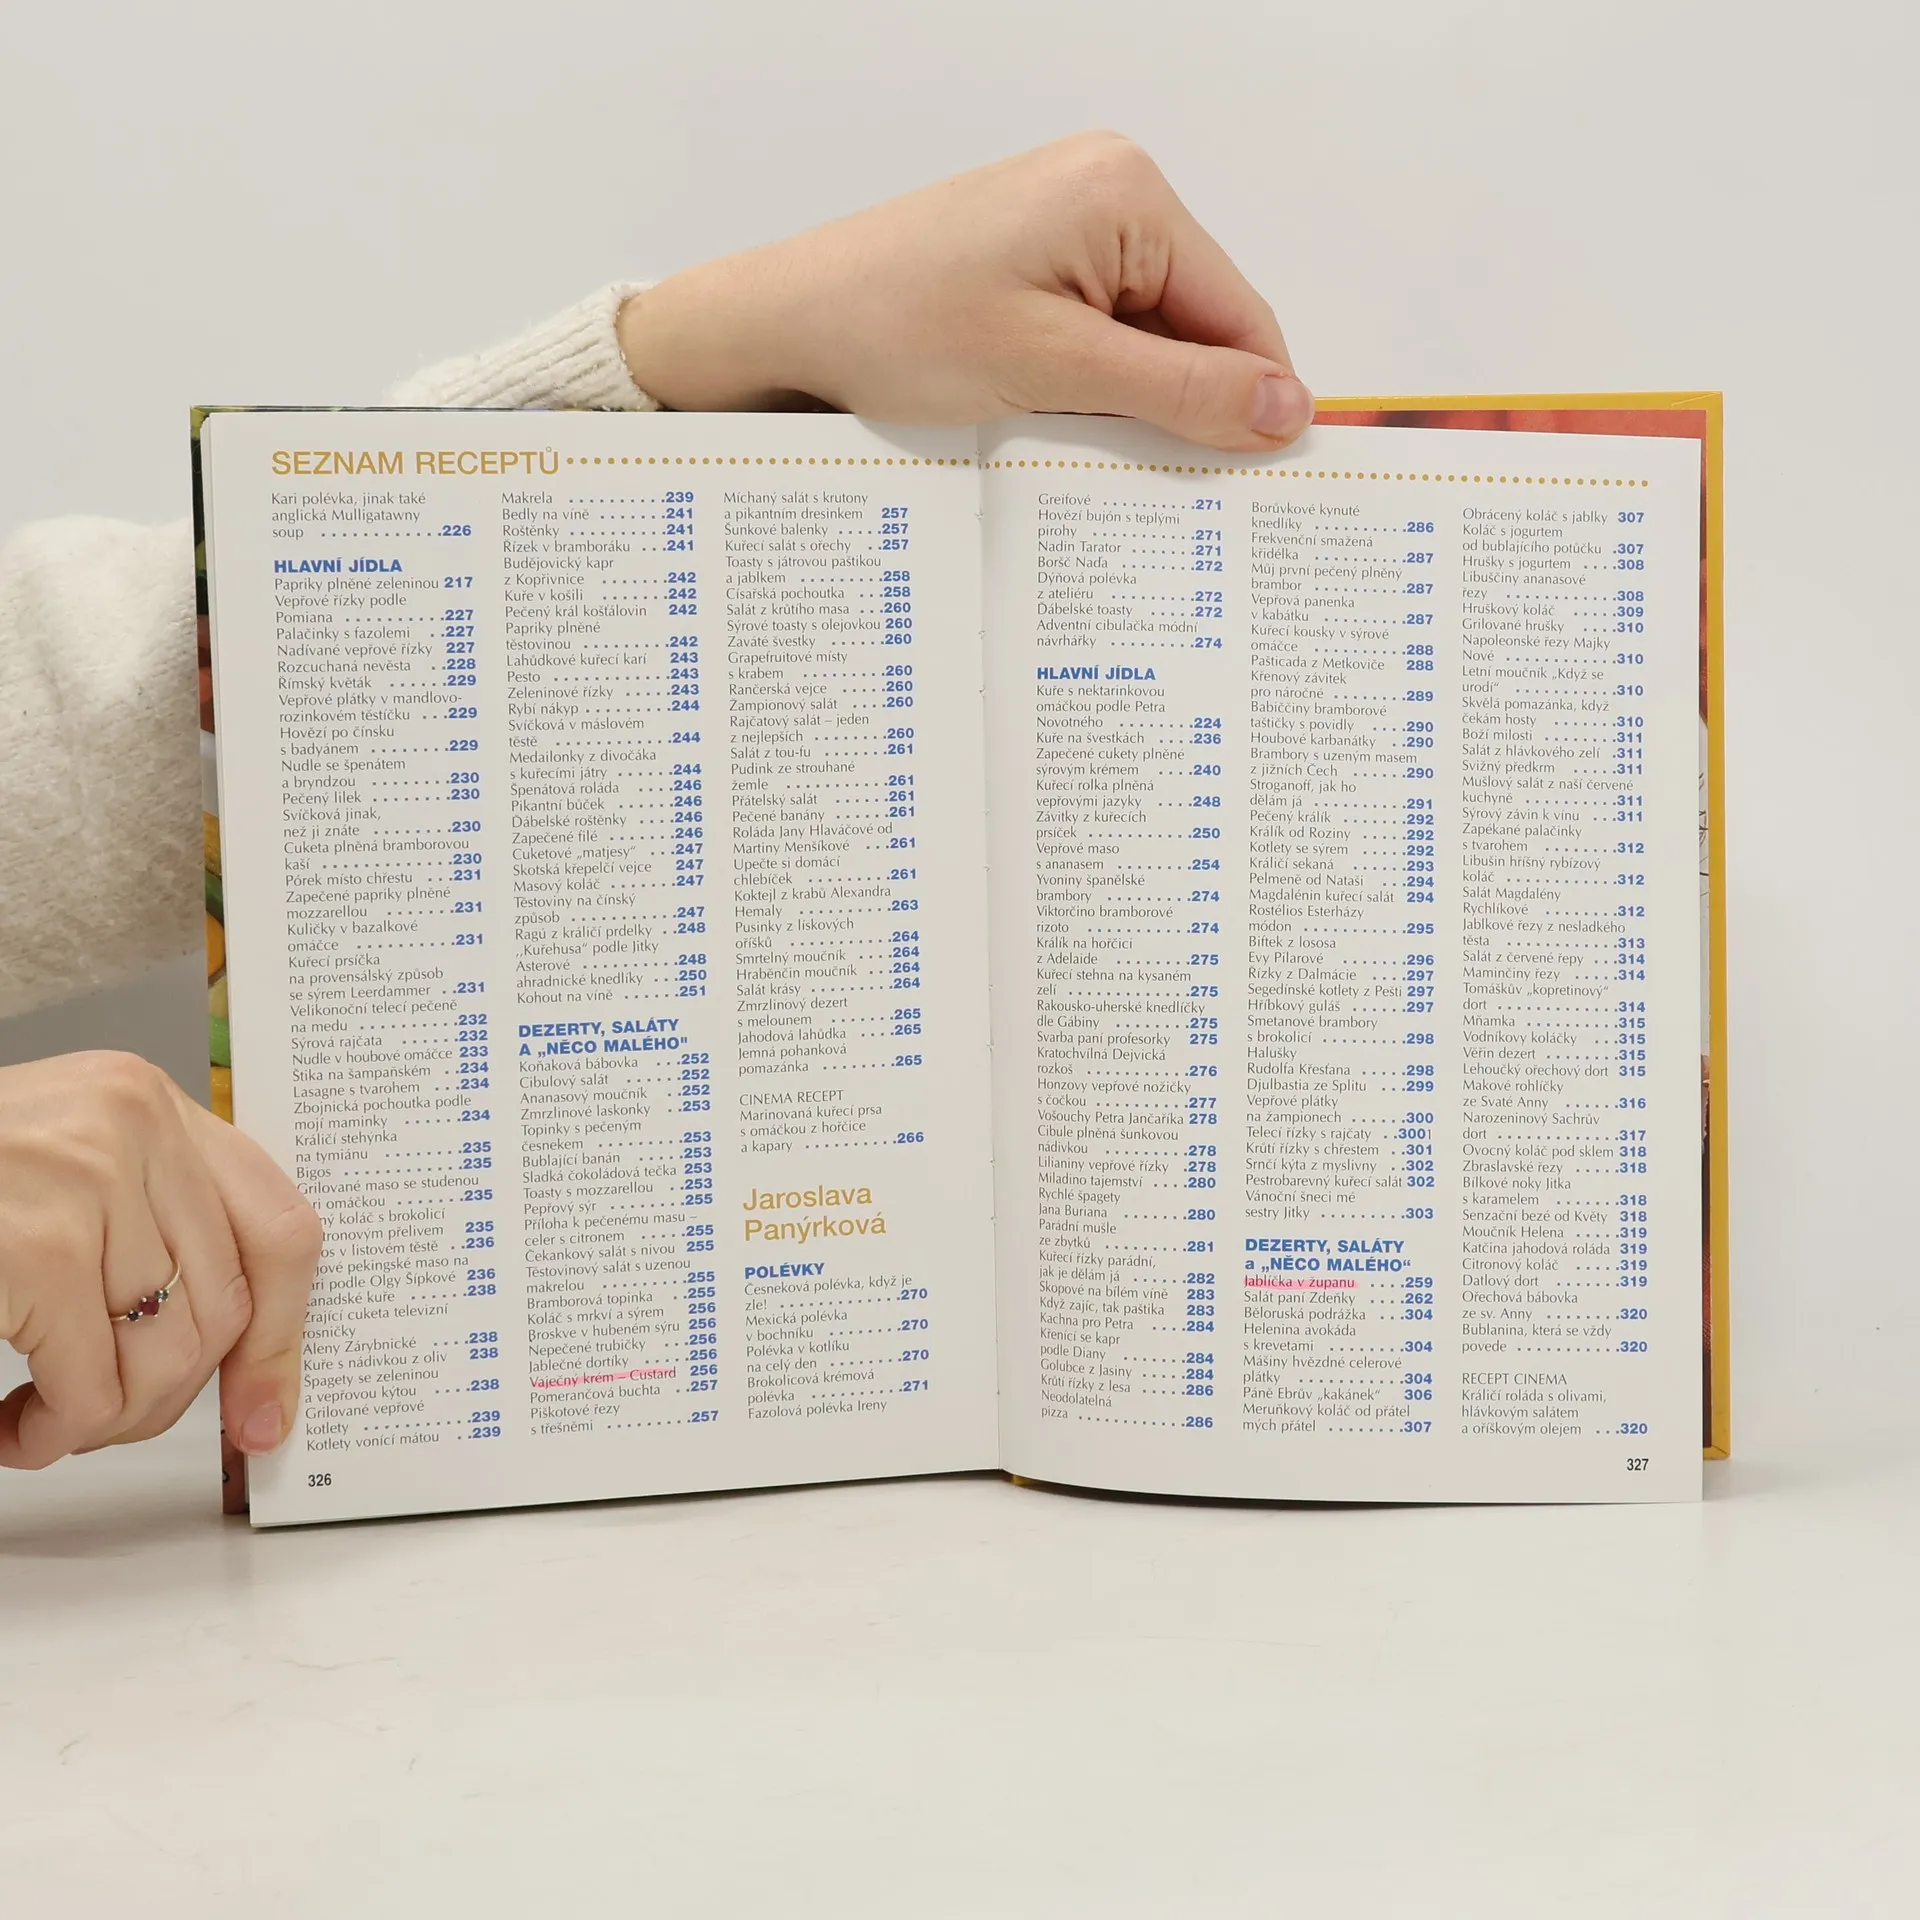 SEZNAM RECEPTŮ
Kari polévka, jinak také
anglická Mulligatawny
soup ............226
HLAVNÍ JÍDLA
Papriky plněné zeleninou 217
Vepřové řízky podle
Pomiana ..........227
Palačinky s fazolemi ..227
Nadívané vepřové řízky 227
Rozcuchaná nevěsta ..228
Římský květák .......229
Vepřové plátky v mandlovo-
rozinkovém těstíčku ...229
Hovězí po čínsku
s badyánem ........229
Nudle se špenátem
a bryndzou ........230
Pečený lilek ........230
Svíčková jinak,
než ji znáte .........230
Cuketa plněná bramborovou
kaší ..............230
Pórek místo chřestu ...231
Zapečené papriky plněné
mozzarellou .......231
Kuličky v bazalkové
omáčce ..........231
Kuřecí prsíčka
na provensálský způsob
se sýrem Leerdammer ..231
Velikonoční telecí pečeně
na medu ..........232
Sýrová rajčata .......232
Nudle v houbové omáčce 233
Štika na šampaňském ..234
Lasagne s tvarohem ...234
Zbojnická pochoutka podle
mojí maminky .......234
Králičí stehýnka
na tymiánu .........235
Bigos ............235
Grilované maso se studenou
ri omáčkou .......235
ný koláč s brokolicí
tronovým přelivem 235
os v listovém těstě ..236
jové pekingské maso na
ari podle Olgy Šípkové 236
anadské kuře .......238
Zrající cuketa televizní
rosničky
Aleny Zárybnické ....238
Kuře s nádivkou z oliv 238
Špagety se zeleninou
a vepřovou kýtou .....238
Grilované vepřové
kotlety ............239
Kotlety vonící mátou ..239
326
Makrela ..........239
Bedly na víně .......241
Roštěnky ..........241
Řízek v bramboráku ...241
Budějovický kapr
z Kopřivnice .......242
Kuře v košili .......242
Pečený král košťálovin 242
Papriky plněné
těstovinou .........242
Lahůdkové kuřecí karí 243
Pesto ............243
Zeleninové řízky .....243
Rybí nákyp ........244
Svíčková v máslovém
těstě ............244
Medailonky z divočáka
s kuřecími játry ......244
Špenátová roláda .....246
Pikantní bůček ......246
Ďábelské roštěnky ....246
Zapečené filé .......246
Cuketové „matjesy“ ...247
Skotská křepelčí vejce 247
Masový koláč .......247
Těstoviny na čínský
způsob ...........247
Ragú z králičí prdelky ..248
„Kuřehusa“ podle Jitky
Asterové ..........248
ahradnické knedlíky ...250
Kohout na víně ......251
DEZERTY, SALÁTY
A „NĚCO MALÉHO"
Koňaková bábovka ...252
Cibulový salát ......252
Ananasový moučník ...252
Zmrzlinové laskonky ..253
Topinky s pečeným
česnekem .........253
Bublající banán .....253
Sladká čokoládová tečka 253
Toasty s mozzarellou ...253
Pepřový sýr ........255
Příloha k pečenému masu –
celer s citronem ......255
Čekankový salát s nivou 255
Těstovinový salát s uzenou
makrelou .........255
Bramborová topinka ..255
Koláč s mrkví a sýrem 256
Broskve v hubeném sýru 256
Nepečené trubičky ...256
Jablečné dortíky .....256
Vaječný krém – Custard 256
Pomerančová buchta ..257
Piškotové řezy
s třešněmi .........257
Míchaný salát s krutony
a pikantním dresinkem 257
Šunkové balenky .....257
Kuřecí salát s ořechy ..257
Toasty s játrovou paštikou
a jablkem .........258
Císařská pochoutka ...258
Salát z krůtího masa ...260
Sýrové toasty s olejovkou 260
Zaváté švestky ......260
Grapefruitové místy
s krabem .........260
Rančerská vejce .....260
Žampionový salát ....260
Rajčatový salát – jeden
z nejlepších ........260
Salát z tou-fu .......261
Pudink ze strouhané
žemle ............261
Přátelský salát ......261
Pečené banány ......261
Roláda Jany Hlaváčové od
Martiny Menšíkové ...261
Upečte si domácí
chlebíček .........261
Koktejl z krabů Alexandra
Hemaly ..........263
Pusinky z lískových
oříšků ............264
Smrtelný moučník ....264
Hraběnčin moučník ...264
Salát krásy .........264
Zmrzlinový dezert
s melounem ........265
Jahodová lahůdka ....265
Jemná pohanková
pomazánka ........265
CINEMA RECEPT
Marinovaná kuřecí prsa
s omáčkou z hořčice
a kapary ..........266
Jaroslava
Panýrková
POLÉVKY
Česneková polévka, když je
zle! .............270
Mexická polévka
v bochníku ........270
Polévka v kotlíku
na celý den ........270
Brokolicová krémová
polévka ..........271
Fazolová polévka Ireny
Greifové ..........271
Hovězí bujón s teplými
pirohy ...........271
Nadin Tarator .......271
Boršč Naďa ........272
Dýňová polévka
z ateliéru .........272
Ďábelské toasty .....272
Adventní cibulačka módní
návrhářky .........274
HLAVNÍ JÍDLA
Kuře s nektarinkovou
omáčkou podle Petra
Novotného ........224
Kuře na švestkách ....236
Zapečené cukety plněné
sýrovým krémem ....240
Kuřecí rolka plněná
vepřovými jazyky ....248
Závitky z kuřecích
prsíček ...........250
Vepřové maso
s ananasem ........254
Yvoniny španělské
brambory .........274
Viktorčino bramborové
rizoto ...........274
Králík na hořčici
z Adelaide .........275
Kuřecí stehna na kysaném
zelí .............275
Rakousko-uherské knedlíčky
dle Gábiny ........275
Svarba paní profesorky 275
Kratochvílná Dejvická
rozkoš ...........276
Honzovy vepřové nožičky
s čočkou ..........277
Vošouchy Petra Jančaříka 278
Cibule plněná šunkovou
nádivkou .........278
Lilianiny vepřové řízky .278
Miladino tajemství ....280
Rychlé špagety
Jana Buriana .......280
Parádní mušle
ze zbytků .........281
Kuřecí řízky parádní,
jak je dělám já ......282
Skopové na bílém víně 283
Když zajíc, tak paštika 283
Kachna pro Petra ....284
Křenící se kapr
podle Diany ........284
Golubce z Jasiny .....284
Krůtí řízky z lesa .....286
Neodolatelná
pizza ............286
Borůvkové kynuté
knedlíky ..........286
Frekvenční smažená
křidélka ..........287
Můj první pečený plněný
brambor ..........287
Vepřová panenka
v kabátku .........287
Kuřecí kousky v sýrové
omáčce ..........288
Pašticada z Metkoviče 288
Křenový závitek
pro náročné ........289
Babiččiny bramborové
taštičky s povidly ....290
Houbové karbanátky ..290
Brambory s uzeným masem
z jižních Čech ......290
Stroganoff, jak ho
dělám já ..........291
Pečený králík .......292
Králík od Roziny .....292
Kotlety se sýrem .....292
Králičí sekaná ......293
Pelmeně od Nataši ...294
Magdalénin kuřecí salát 294
Rostélios Esterházy
módon ...........295
Biftek z lososa
Evy Pilarové .......296
Řízky z Dalmácie ....297
Segedínské kotlety z Pešti 297
Hříbkový guláš ......297
Smetanové brambory
s brokolicí .........298
Halušky
Rudolfa Křesťana ....298
Djulbastia ze Splitu ...299
Vepřové plátky
na žampionech ......300
Telecí řízky s rajčaty ..3001
Krůtí řízky s chrestem ..301
Srnčí kýta z myslivny ..302
Pestrobarevný kuřecí salát 302
Vánoční šneci mé
sestry Jitky .........303
DEZERTY, SALÁTY
a „NĚCO MALÉHO“
Jablíčka v županu ....259
Salát paní Zdeňky ....262
Běloruská podrážka ...304
Helenina avokáda
s krevetami ........304
Mášiny hvězdné celerové
plátky ...........304
Páně Ebrův „kakánek“ 306
Meruňkový koláč od přátel
mých přátel ........307
Obrácený koláč s jablky 307
Koláč s jogurtem
od bublajícího potůčku .307
Hrušky s jogurtem ....308
Libuščiny ananasové
řezy .............308
Hruškový koláč .....309
Grilované hrušky ....310
Napoleonské řezy Majky
Nové ............310
Letní moučník „Když se
urodí“ ...........310
Skvělá pomazánka, když
čekám hosty .......310
Boží milosti ........311
Salát z hlávkového zelí .311
Svižný předkrm .....311
Mušlový salát z naší červené
kuchyně ..........311
Sýrový závin k vínu ...311
Zapékané palačinky
s tvarohem ........312
Libušin hříšný rybízový
koláč ............312
Salát Magdalény
Rychlíkové ........312
Jablkové řezy z nesladkého
těsta ............313
Salát z červené řepy ...314
Maminčiny řezy .....314
Tomáškův „kopretinový“
dort .............314
Mňamka ..........315
Vodníkovy koláčky ...315
Věřin dezert ........315
Lehoučký ořechový dort 315
Makové rohlíčky
ze Svaté Anny ......316
Narozeninový Sachrův
dort .............317
Ovocný koláč pod sklem 318
Zbraslavské řezy .....318
Bílkové noky Jitka
s karamelem .......318
Senzační bezé od Květy 318
Moučník Helena .....319
Katčina jahodová roláda 319
Citronový koláč .....319
Datlový dort .......319
Ořechová bábovka
ze sv. Anny ........320
Bublanina, která se vždy
povede ...........320
RECEPT CINEMA
Králičí roláda s olivami,
hlávkovým salátem
a oříškovým olejem ...320
327